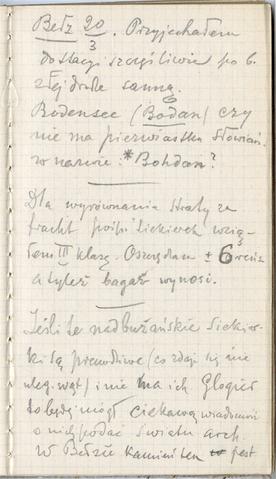 Bełz 20/3. Przyjechałem
do stacyi szczęśliwie po b.
złej drodze sanną.
Bodensee (Bodan) czy
nie ma pierwiastku słowiań.
w nazwie. *Bohdan?
Dla wyrównania straty za
fracht pośp. siekierek wzią-
łem III klasę. Oszczędzam ± 6
a tyleż bagaż wynosi.
Jeśli te nadbużańskie siekier-
ki są prawdziwe (co zdaje się nie
uleg. wąt) i nie ma ich Gloger
to będę mógł ciekawą wiadomość
o nich podać światu arch.
w Bełzie kamień ten jest